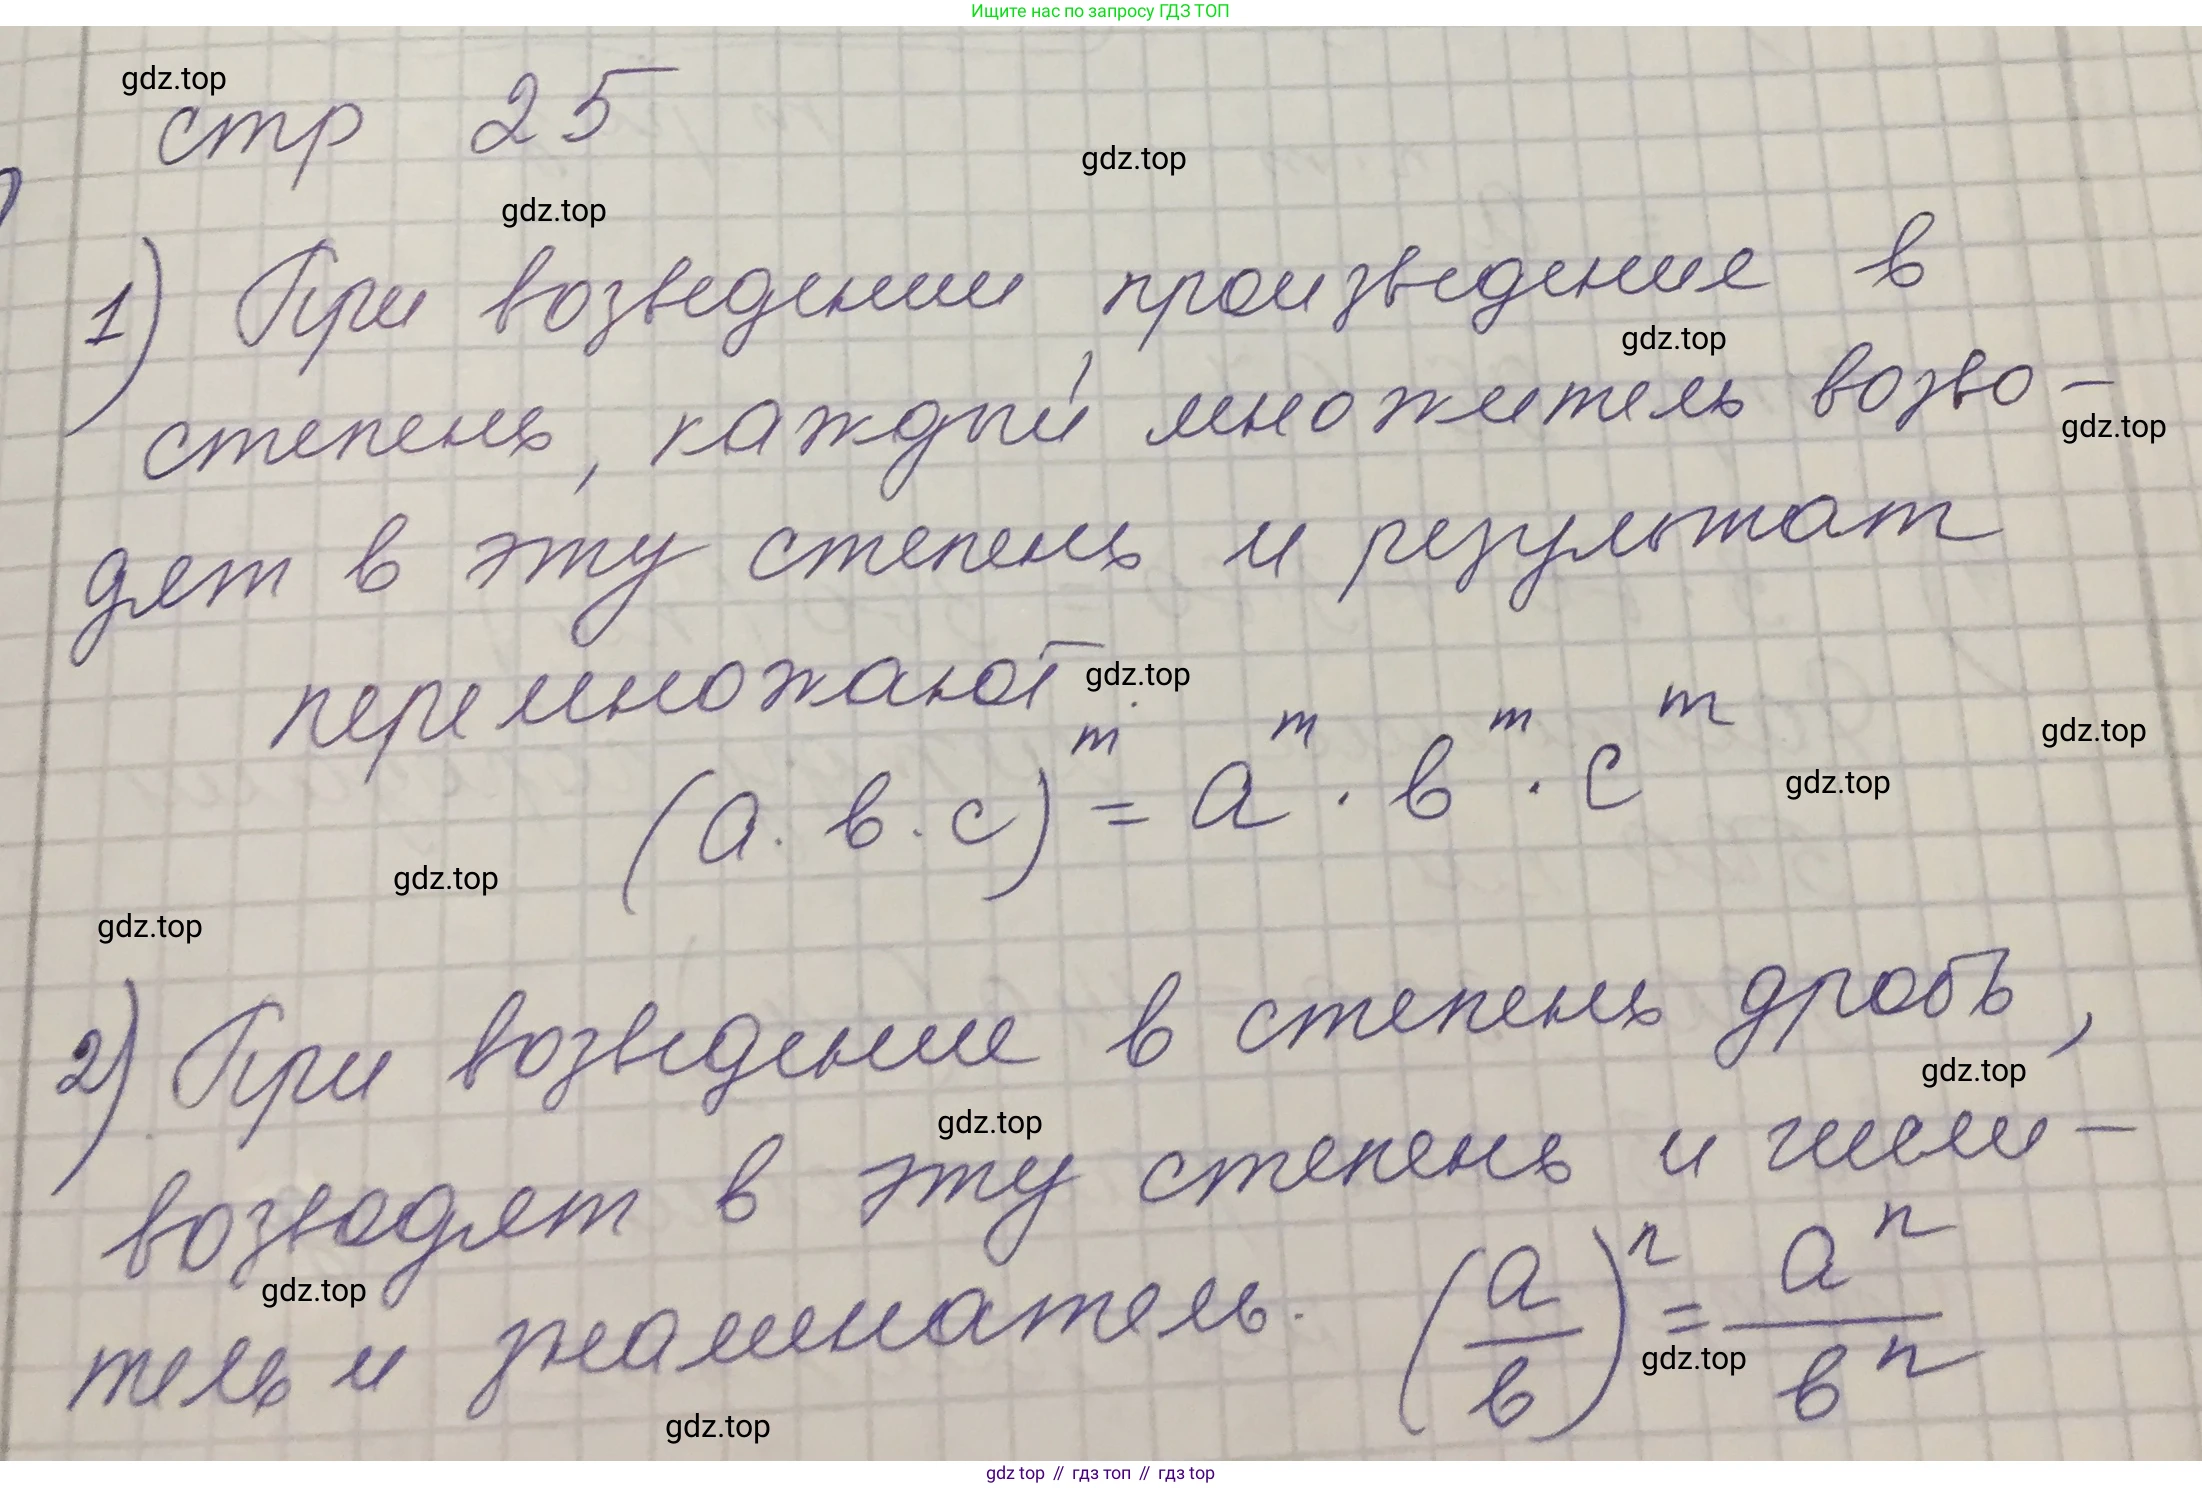 Ищите нас по запросу ГДЗ ТОП
gdz.top
стр 25
gdz.top
gdz.top
1) При возведении произведение в
gdz.top
степень, каждый множитель возво-
gdz.top
дят в эту степень и результат
перемножают
gdz.top
gdz.top
(a · b · c)^m = a^m · b^m · c^m
gdz.top
gdz.top
gdz.top
2) При возведение в степень дробь,
gdz.top
gdz.top
возводят в эту степень и числи-
gdz.top
тель и знаменатель. (a/b)^n = a^n/b^n
gdz.top
gdz.top
gdz top // гдз топ // гдз top